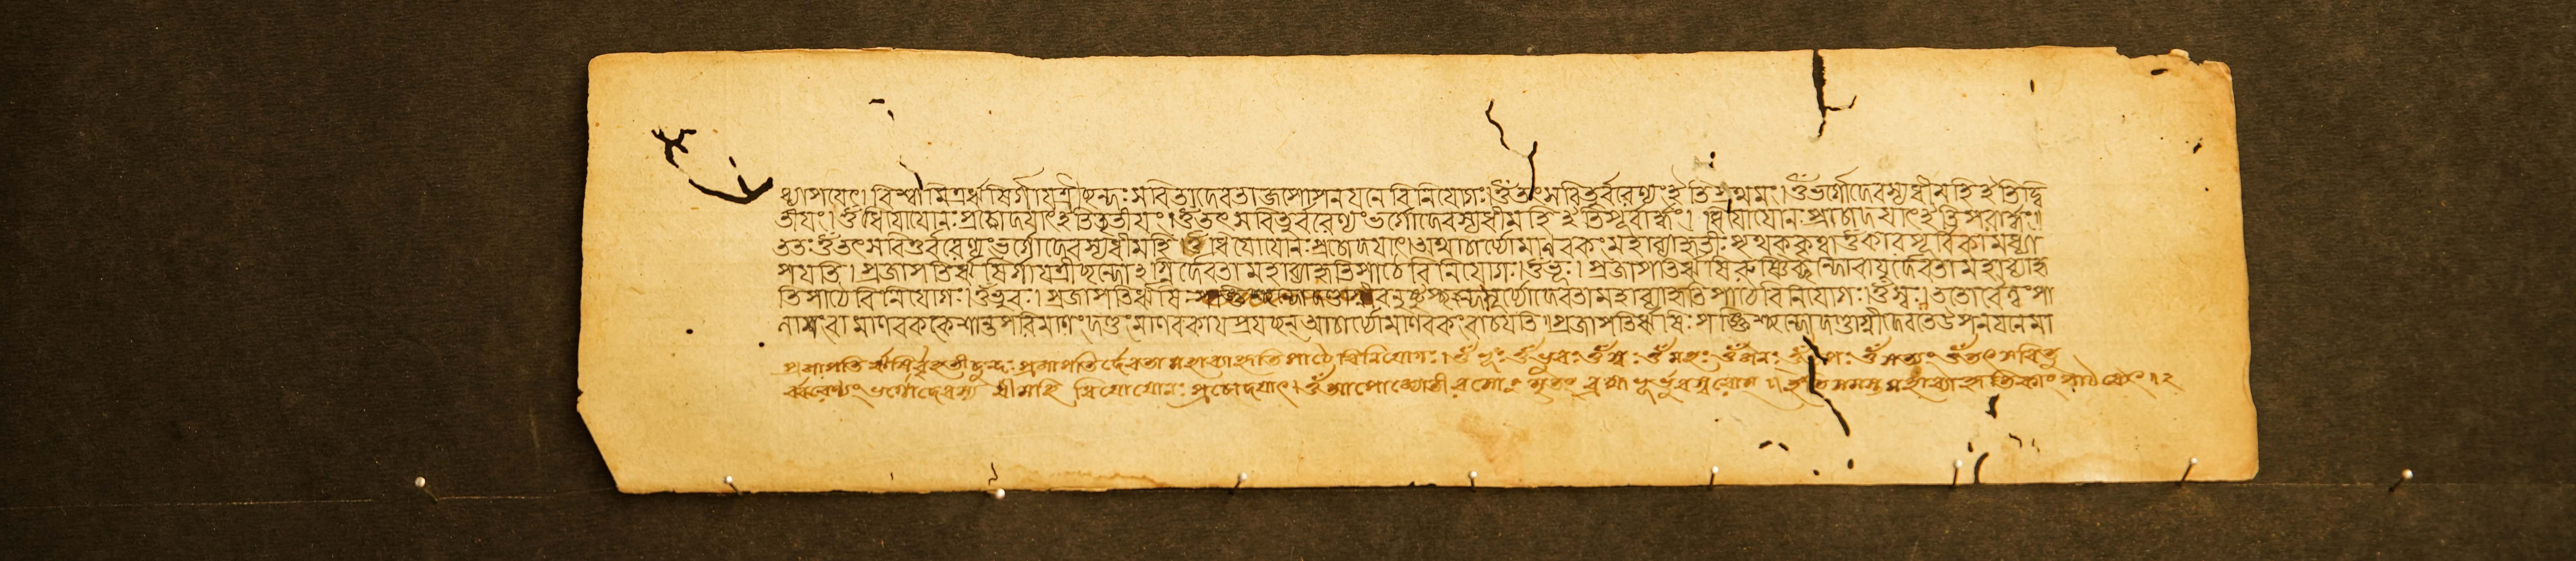 ধ্যাপয়েৎ। বিশ্বামিত্রর্ঋষির্গায়ত্রীছন্দঃসবিতাদেবতাজপোপনয়নেবিনিয়োগঃ।ওঁতৎসবিতুর্বরেণ্যংইতিপ্রথমং।ওঁভর্গোদেবস্যধীমহিইতিদ্বি
তীয়ং।ওঁধিয়োয়োনঃপ্রচোদয়াৎইতিতৃতীয়ং।ওঁতৎসবিতুর্বরেণ্যংভর্গোদেবস্যধীমহিইতিপূর্বার্দ্ধং। ধিয়োয়োনঃপ্রচোদয়াৎইতিপরার্দ্ধং।
ততঃওঁতৎসবিতুর্বরেণ্যংভর্গোদেবস্যধীমহি।ওঁধিয়োয়োনঃপ্রচোদয়াৎ।অথাচার্য্যোমাণবকংমহাব্যাহৃতীঃপৃথক্কৃত্বাওঁকারপূর্বিকামধ্যা
পয়তি। প্রজাপতিরৃষির্গায়ত্রীছন্দোঽগ্নির্দেবতামহাব্যাহৃতিপাঠেবিনিয়োগঃ।ওঁভূঃ। প্রজাপতিরৃষিরুষ্ণিক্ছন্দোবায়ুর্দেবতামহাব্যাহৃ
তিপাঠেবিনিয়োগঃ।ওঁভুবঃ। প্রজাপতিরৃষি রনুষ্টুপ্ছন্দঃসূর্য্যোদেবতামহাব্যাহৃতিপাঠেবিনিয়োগঃ।ওঁস্বঃ।ততোবৈণ্বংপা
মাণবককেশান্তপরিমাণংদণ্ডংমাণবকায়প্রয়ছন্আচার্য্যোমাণবকংবাচয়তি।প্রজাপতিরৃষিঃপঙ্ক্তিশ্ছন্দোদণ্ডাগ্নীদেবতেউপনয়নেমা
প্রজাপতির্ঋষির্বৃহতীছন্দঃ প্রজাপতির্দেবতা মহাব্যাহৃতিপাঠে বিনিয়োগঃ। ওঁ ভূঃ ওঁ ভুবঃ ওঁ স্বঃ ওঁ মহঃ ওঁ জনঃ ওঁ তপঃ ওঁ সত্যং ওঁ তৎ সবিতু
র্বরেণ্যং ভর্গোদেবস্য ধীমহি ধিয়োয়োনঃ প্রচোদয়াৎ। ওঁ আপোজ্যোতীরসোঽমৃতং ব্রহ্ম ভূর্ভুবস্বরোম্ ॥ ইতি সমস্ত মহাব্যাহৃতিকাং পাঠয়েৎ॥২